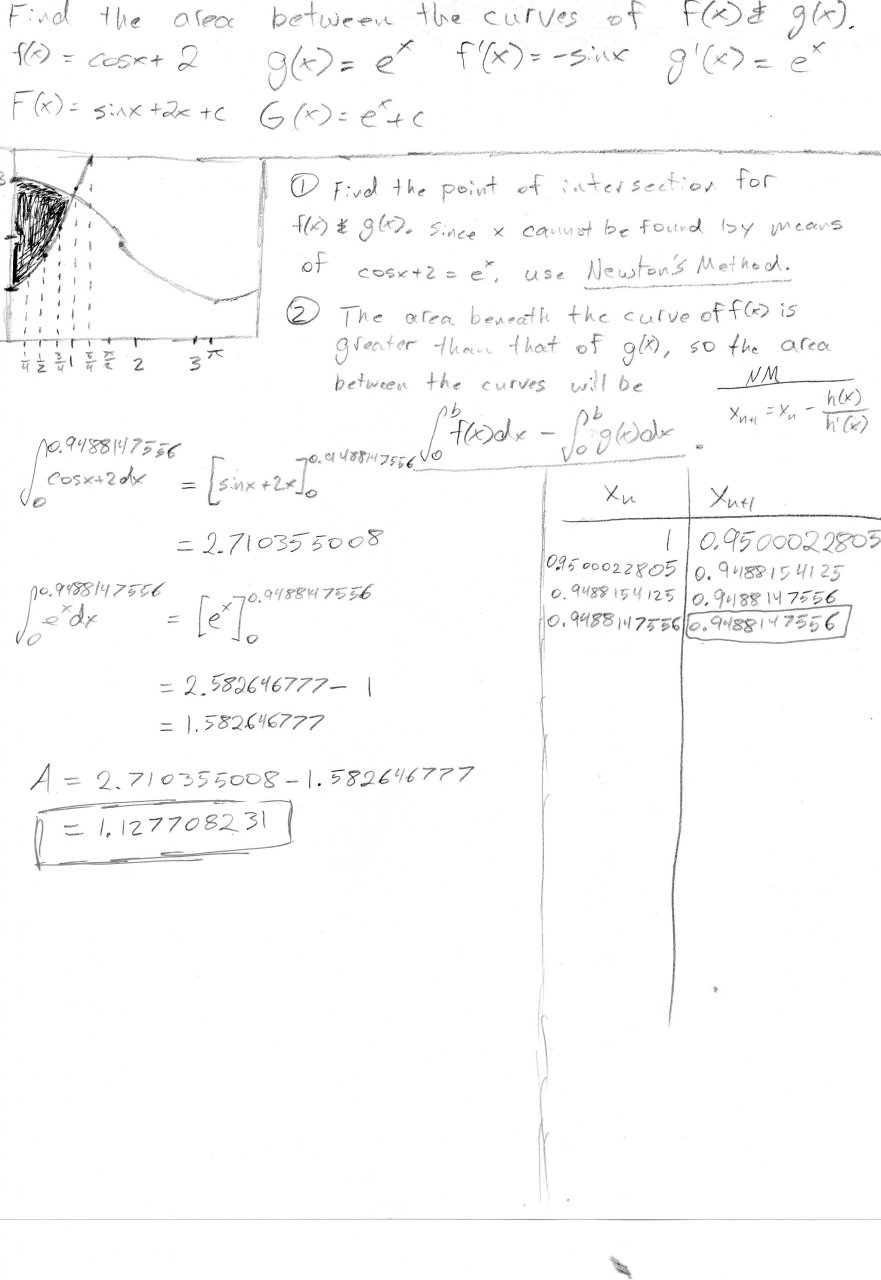 Find the area between the curves of f(x) & g(x).
f(x) = cosx + 2 g(x) = e^x f'(x) = -sinx g'(x) = e^x
F(x) = sinx + 2x + c G(x) = e^x + c
3
1/4 1/2 3/4 1 5/4 π/2 2 3 π
① Find the point of intersection for
f(x) & g(x). Since x cannot be found by means
of cosx + 2 = e^x, use Newton's Method.
② The area beneath the curve of f(x) is
greater than that of g(x), so the area
between the curves will be
∫_0^b f(x)dx - ∫_0^b g(x)dx.
NM
x_{n+1} = x_n - h(x)/h'(x)
∫_0^0.9488147556 cosx+2dx = [sinx+2x]_0^0.9488147556
= 2.710355008
∫_0^0.9488147556 e^x dx = [e^x]_0^0.9488147556
= 2.582646777 - 1
= 1.582646777
A = 2.710355008 - 1.582646777
= 1.127708231
x_n x_{n+1}
1 0.9500022805
0.9500022805 0.9488154125
0.9488154125 0.9488147556
0.9488147556 0.9488147556